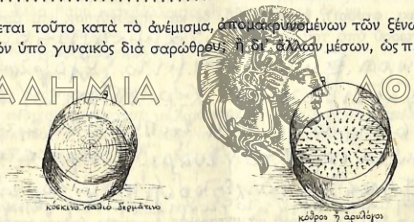 εται τοῦτο κατὰ τὸ ἀνέμισμα, ἀπομακρυνομένων τῶν ξένω
όν ὑπὸ γυναικὸς διὰ σαρώθρου, ἢ δι' ἄλλων μέσων, ὡς π
ΑΔΗΜΙΑ ΑΘ
κόσκινο παλιὸ δερμάτινο
κόθρος ἢ ἀρυλόγος